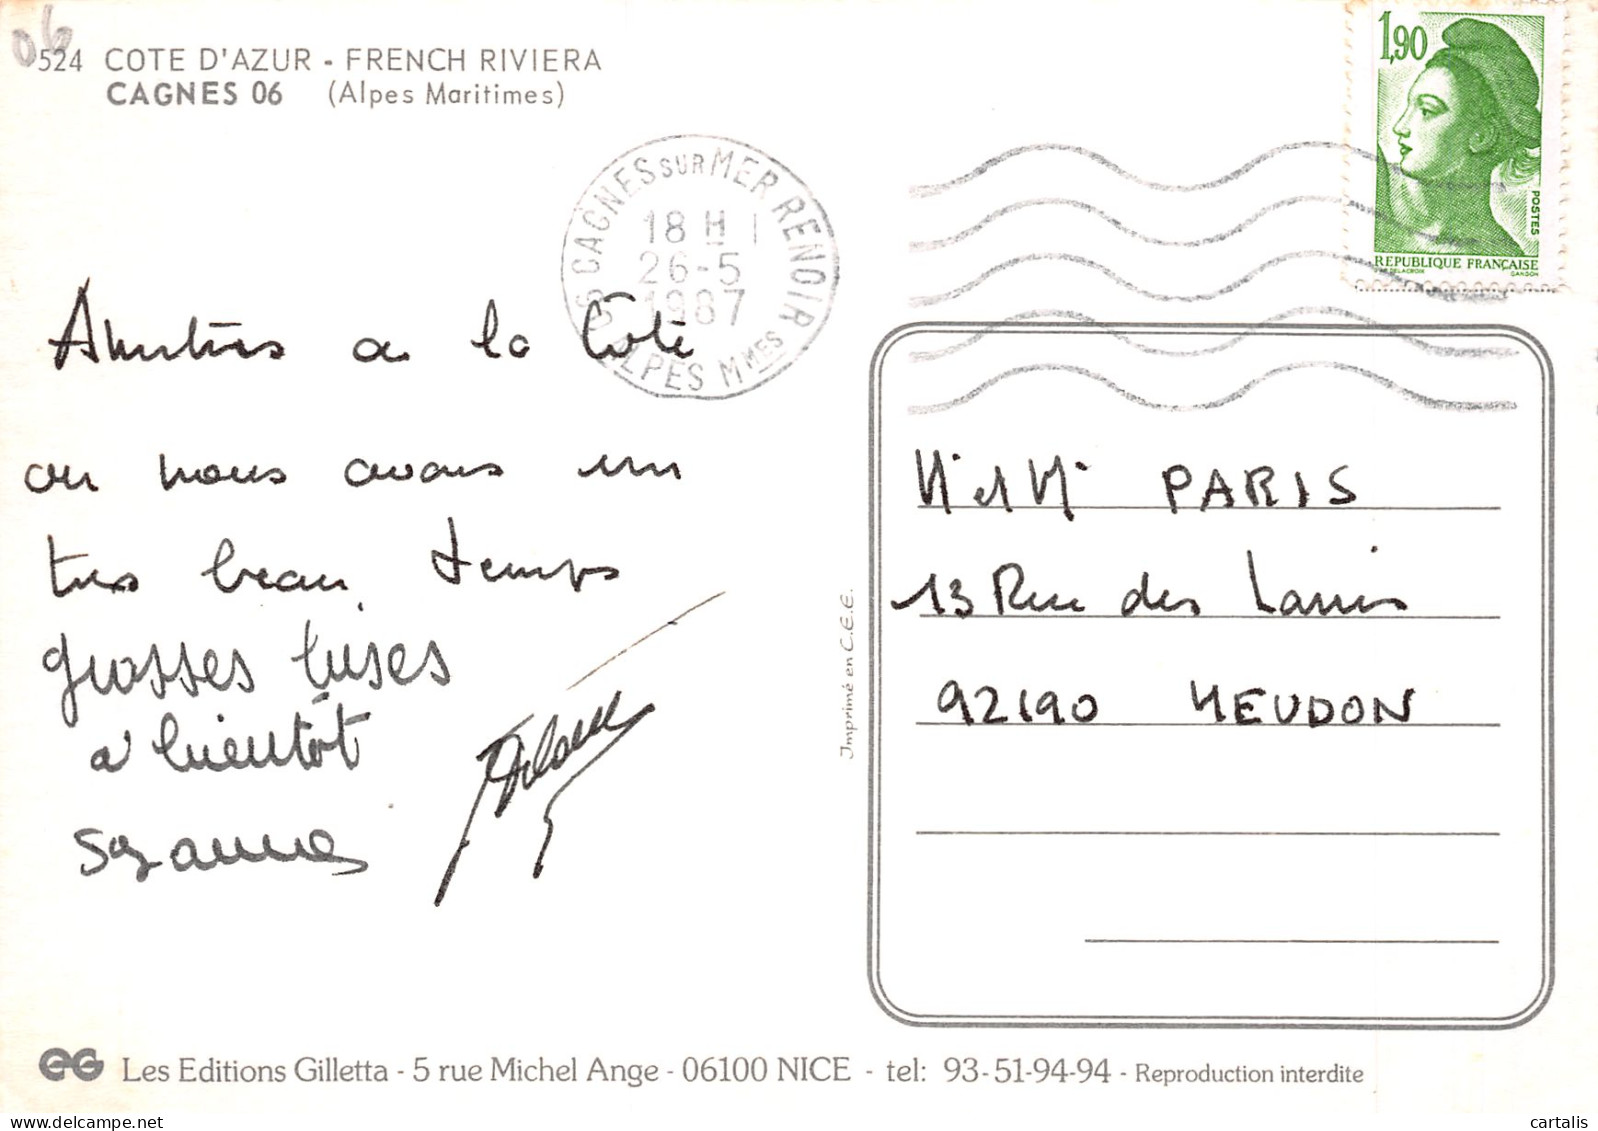 06
524 COTE D'AZUR - FRENCH RIVIERA
CAGNES 06 (Alpes Maritimes)
1,90
POSTES
REPUBLIQUE FRANÇAISE
D'APRES DELACROIX GANDON
06 CAGNES SUR MER RENOIR
18 H
26-5
1987
ALPES MMES
Amitiés de la Côte
ou nous avons un
tres beau temps
grosses bises
a bientôt
Suzanne
Mr et Mme PARIS
13 Rue des Lauris
92190 MEUDON
Imprimé en C.E.E.
EG Les Editions Gilletta - 5 rue Michel Ange - 06100 NICE - tel: 93-51-94-94 - Reproduction interdite
cartalis